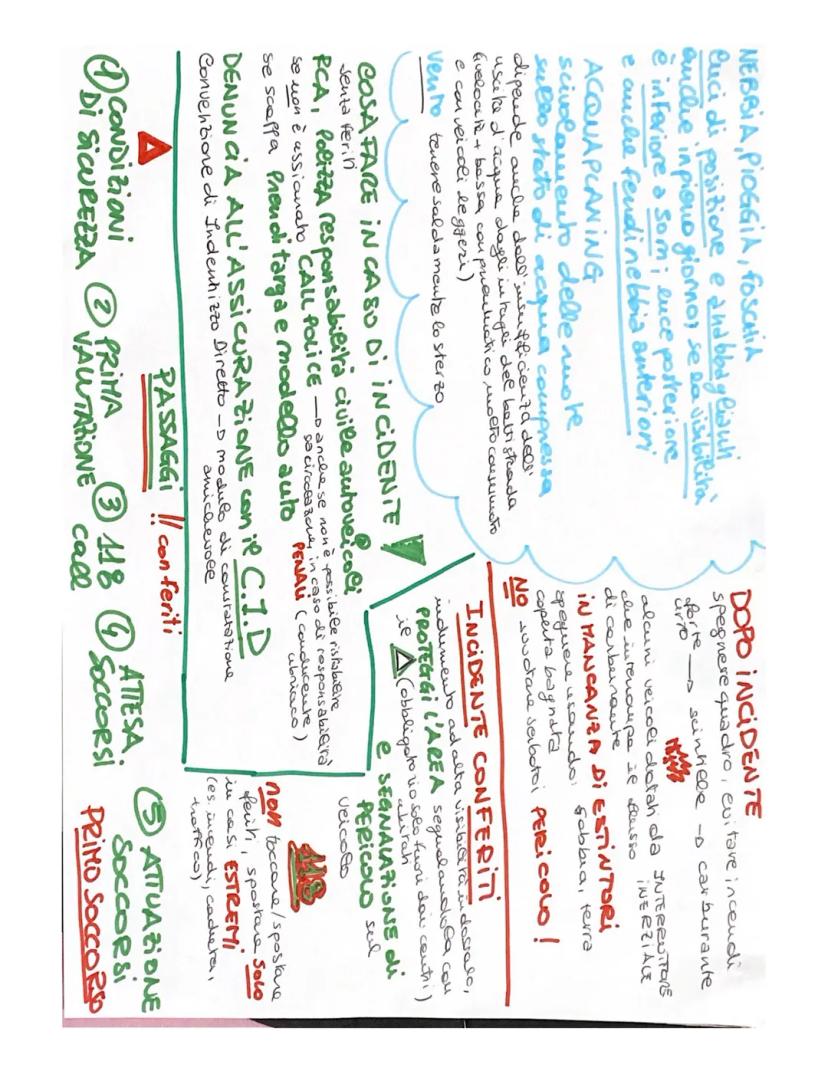 NEBBIA, PIOGGIA, FOSCHIA
luci di posizione e anabbaglianti
anche in pieno giorno, se la visibilità
è inferiore a 50m, luce posteriore
e anche fendinebbia anteriori
ACQUAPLANING
scivolamento delle ruote
sullo stato di acqua compressa
dipende anche dall'insufficienza dell'
uscita d'acqua dagli intagli del battistrada
(velocità + bassa con pneumatico molto consumato
e con veicoli leggeri)
vento tenere saldamente lo sterzo
DOPO INCIDENTE
spegnere quadro, evitare incendi
forte → scintille → carburante
urto
alcuni veicoli dotati da INTERRUTTORE
INERZIALE
che interrompe il flusso
di carburante
IN MANCANZA DI ESTINTORI
spegnere usando: sabbia, terra
coperta bagnata
NO svuotare serbatoi PERICOLO!
COSA FARE IN CASO DI INCIDENTE
senza feriti
RCA, POLIZZA responsabilità civile autoveicoli
se non è assicurato CALL POLICE → anche se non è possibile ristabilire
la circolazione, in caso di responsabilità
PENALI (conducente ubriaco)
se scappa prendi targa e modello auto
DENUNCIA ALL'ASSICURAZIONE con il C.I.D
Convenzione di Indennizzo Diretto → modulo di constatazione
amichevole
INCIDENTE CON FERITI
indumento ad alta visibilità indossalo,
PROTEGGI L'AREA segnalandola con
il (obbligatorio solo fuori dai centri)
abitati
e SEGNALAZIONE di
PERICOLO sul
veicolo
118
non toccare/spostare
feriti, spostare SOLO
in casi ESTREMI
(es. incendi, caduta,
traffico)
PASSAGGI !! con feriti
① CONDIZIONI
DI SICUREZZA
② PRIMA
VALUTAZIONE
③ 118
call
④ ATTESA
SOCCORSI
⑤ ATTUAZIONE
SOCCORSI
PRIMO SOCCORSO